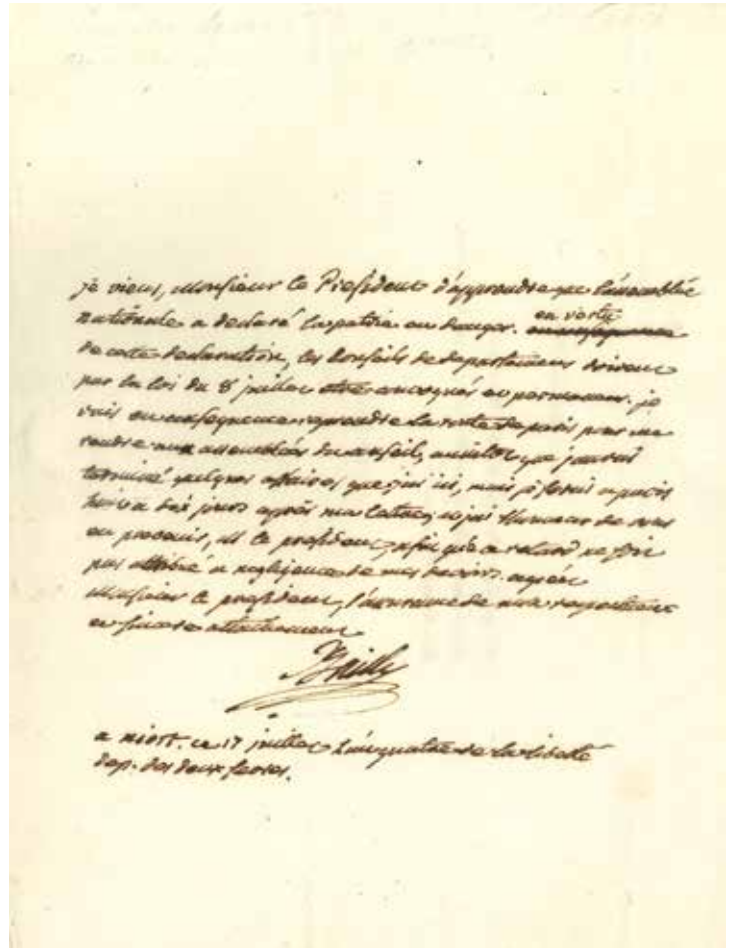 je viens, Monsieur le President d'apprendre que l'assemblée
nationale a declaré la patrie en danger. en vertu
de cette declaration, les Conseils de departement doivent
par la loi du 8 juillet etre convoqués en permanence. je
vais en consequence reprendre la route de paris pour me
rendre aux assemblées du conseil, aussitot que j'aurai
terminé quelques affaires que j'ai ici, mais je serai a paris
huit a dix jours après ma lettre, et j'ai l'honneur de vous
en prevenir, M le president, afin que ce retard ne soit
pas attribué a negligence de mes devoirs. agréez
Monsieur le president, l'assurance de mon respectueux
et sincere attachement
Bailly
a niort. ce 17 juillet l'an quatre de la liberté
dep. des deux sevres.